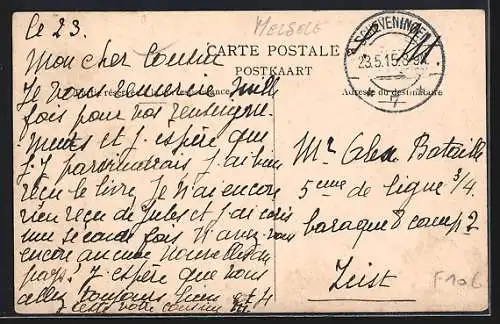 Le 23.
MELSELE
CARTE POSTALE
POSTKAART
SCHEVENINGEN
23.5.15. 8-9V.
7
Mon cher Cousin
Je vous remercie mille
Adresse du destinataire
fois pour vos renseigne-
ments et j'espère que
j'y parviendrais j'ai bien
reçu le livre Je n'ai encore
rien reçu de Jules et j'ai écris
une seconde fois N'avez-vous
encore aucune nouvelles du
pays? J'espère que vous
allez toujours bien
votre cousin
Mr Alex Bataille
5eme de ligne 3/4
baraque 8 camp 2
Zeist
F 106